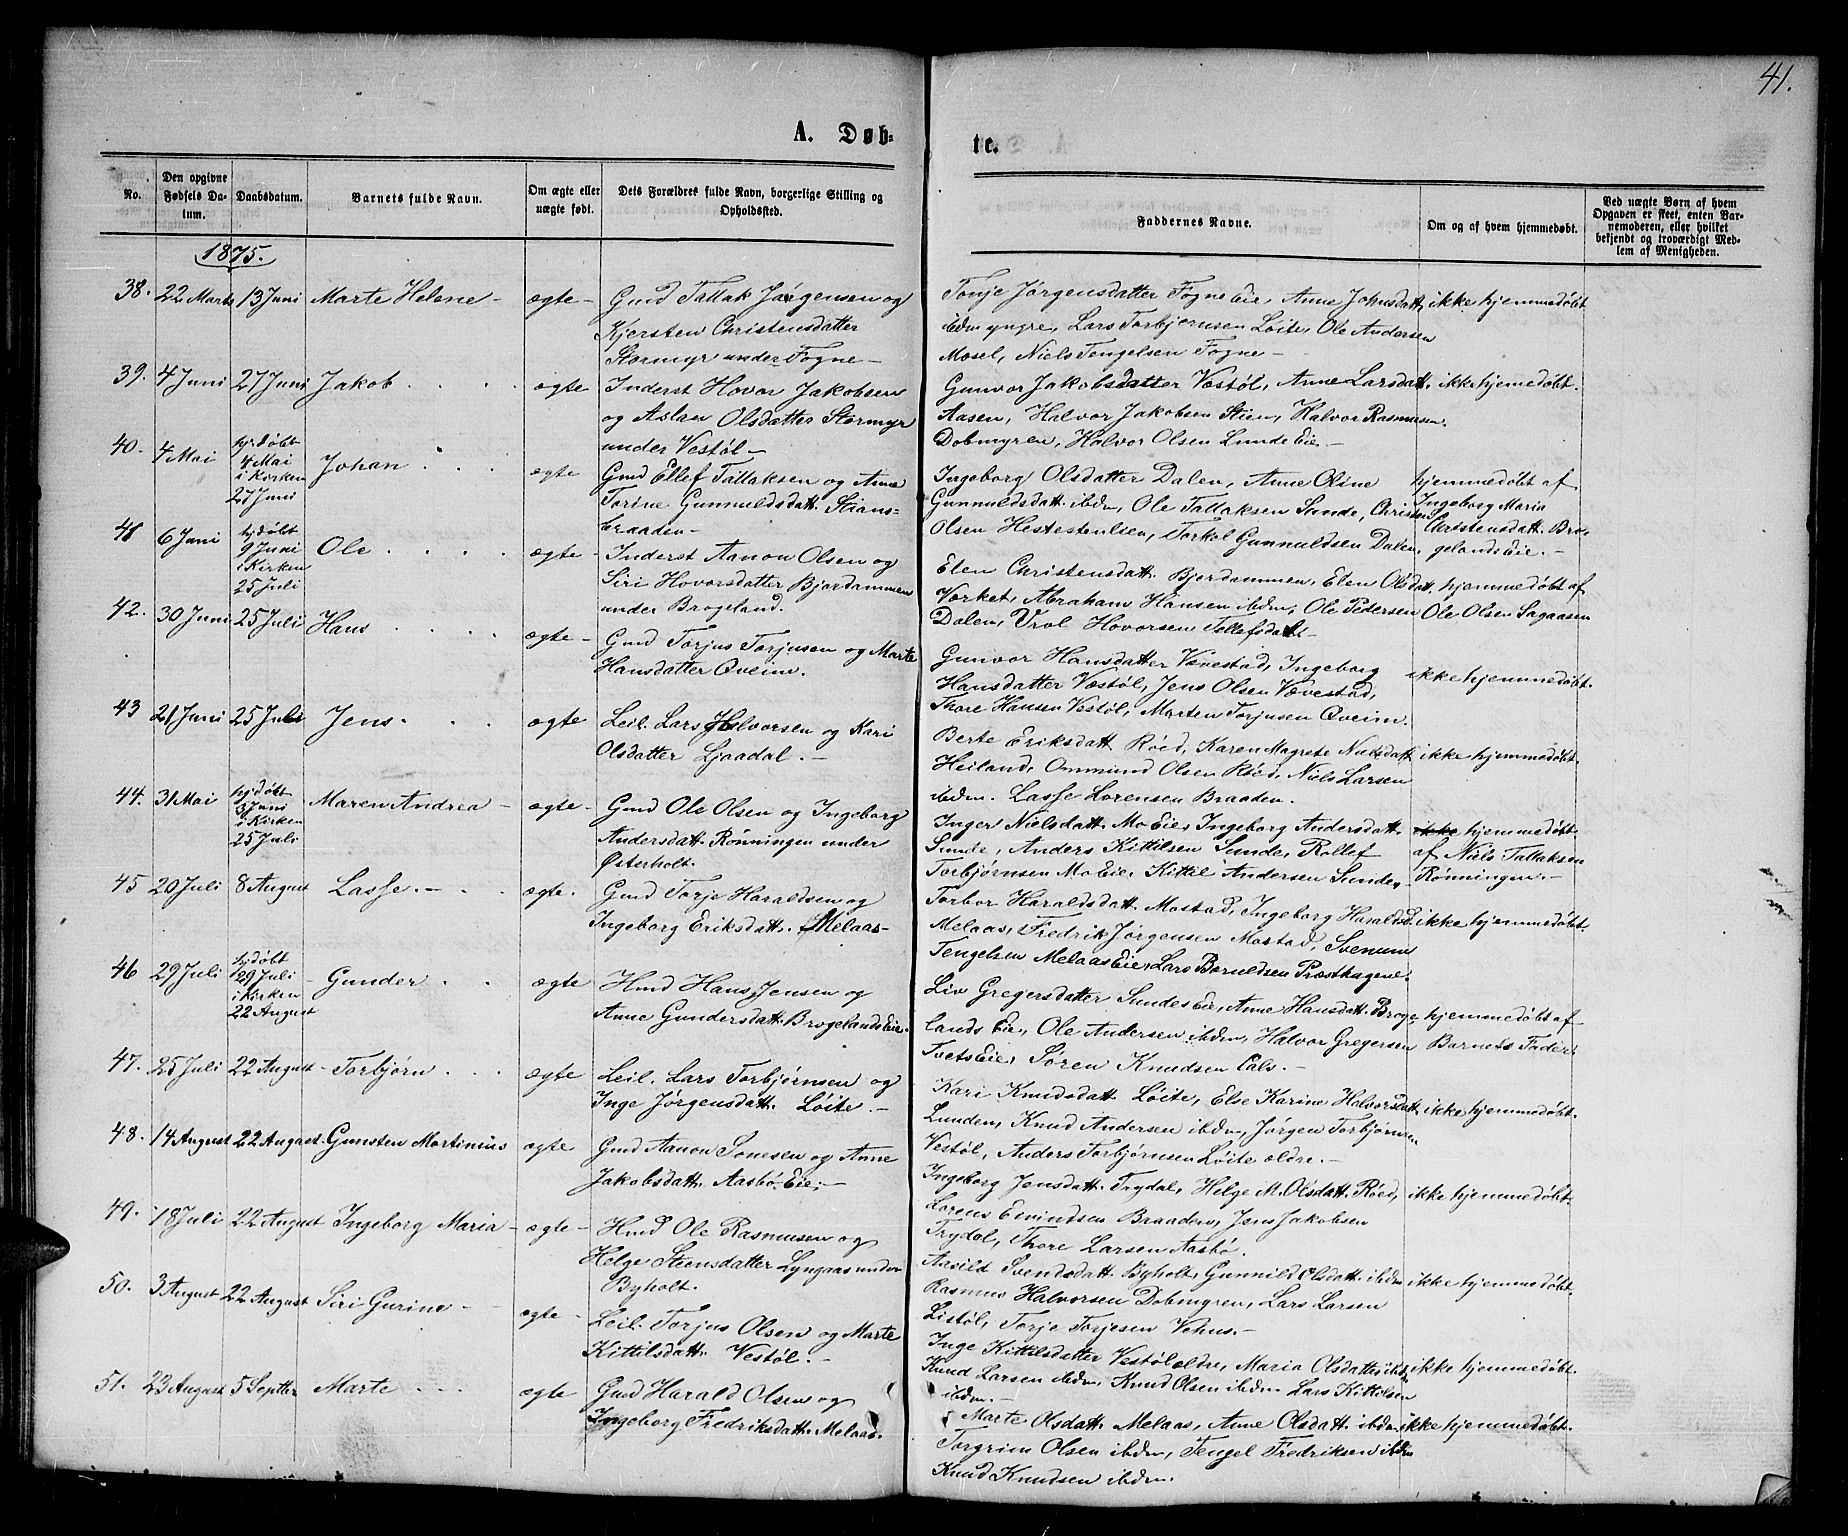 41.
A. Døb-
te.
No.
Den opgivne Fødsels Da-tum.
Daabsdatum.
Barnets fulde Navn.
Om ægte eller uægte født.
Dets Forældres fulde Navn, borgerlige Stilling og Opholdssted.
Faddernes Navne.
Om og af hvem hjemmedøbt.
Ved uægte Børn af hvem Opgaven er skeet, enten Bar-nemoderen, eller hvilket bekjendt og troværdigt Med-lem af Menigheden.
1875.
38. 22 Marts 13 Juni Marte Helene - ægte -
Gmd Tallak Jørgensen og
Kjersten Christensdatter
Stormyr under Fogne -
Tonje Jørgensdatter Fogne Eie, Anne Johnsdatt.
ibdm yngre, Lars Torbjørnsen Løite, Ole Andersen
Mosel, Niels Tengelsen Fogne -
ikke hjemmedøbt
39. 4 Juni 27 Juni Jakob ægte
Inderst Hovor Jakobsen
og Aslau Olsdatter Stormyr
under Vestøl -
Gunvor Jakobsdatter Vestøl, Anne Larsdatt.
Aasen, Halvor Jakobsen Stien, Halvor Rasmusen
Dobmyren, Halvor Olsen Lunde Eie -
ikke hjemmedøbt.
40. 4 Mai hjdøbt
4 Mai
i Kirken
27 Juni
Johan ægte
Gmd Ellef Tallaksen og Anne
Torine Gunnuldsdatt. Stians-
braaden -
Ingeborg Olsdatter Dalen, Anne Oline
Gunnuldsdatt. ibdm, Ole Tallaksen Sunde, Christen
Olsen Hestestenlien, Torkel Gunnuldsen Dalen,
hjemmedøbt af
Ingeborg Maria
Christensdatt. Bro-
gelands Eie. -
41 6 Juni hjdøbt
9 Juni
i Kirken
25 Juli
Ole ægte -
Inderst Aanon Olsen og
Siri Hovorsdatter Bjordammen
under Brogeland.
Elen Christensdatt. Bjordammen, Elen Olsdatt.
Værket, Abraham Hansen ibdm, Ole Pedersen
Dalen, Vrol Hovorsen
hjemmedøbt af
Ole Olsen Sagaasen
42. 30 Juni 25 Juli Hans ægte -
Gmd Torjus Torjusen og Marte
Hansdatter Qveim.
Gunvor Hansdatter Vævestad, Ingeborg
Hansdatter Vestøl, Jens Olsen Vævestad,
Thore Hansen Vestøl, Marten Torjusen Qveim.
ikke hjemmedøbt.
43 21 Juni 25 Juli Jens. ægte
Leil. Lars Halvorsen og Kari
Olsdatter Ljaadal. -
Berte Eriksdatt. Røed, Karen Magrete Nielsdatt.
Heiland, Ommund Olsen Røed, Niels Larsen
ibdm. Lasse Lorensen Braaden.
ikke hjemmedøbt.
44. 31 Mai hjdøbt
3 Juni
i Kirken
25 Juli
Maren Andrea - ægte -
Gmd Ole Olsen og Ingeborg
Andersdatt. Rønningen under
Østerholt.
Inger Nielsdatt. Mo Eie, Ingeborg Andersdatt.
Sunde, Anders Kittilsen Sunde, Rollef
Torbjørnsen Mo Eie, Kittil Andersen Sunde,
ikke hjemmedøbt.
af Niels Tallaksen
Rønningen. -
45 20 Juli 8 August Lasse. - ægte.
Gmd Torje Haraldsen og
Ingeborg Eriksdatt. Melaas -
Torbor Haraldsdatt. Mostad, Ingeborg Haraldsd.
Melaas, Fredrik Jørgensen Mostad, Svenum
Tengelsen Melaas Eie, Lars Bornldsen Præsthagene.
ikke hjemmedøbt.
46 29 Juli hjdøbt
29 Juli
i Kirken
22 August
- Gunder ægte
Hmd Hans Jensen og
Anne Gundersdatt. Brogelands Eie.
Liv Gregersdatter Sundes Eie, Anne Hansdatt. Broge-
lands Eie, Ole Andersen ibdm, Halvor Gregersen
Tvets Eie, Søren Knudsen Eals. -
hjemmedøbt af
Barnets Fader.
47. 25 Juli 22 August - Torbjørn ægte
Leil. Lars Torbjørnsen og
Inge Jørgensdatt. Løite. -
Kari Knudsdatt. Løite, Else Karine Halvorsdatt.
Lunden, Knud Andersen ibdm, Jørgen Torbjørnsen
Vestøl, Anders Torbjørnsen Løite ældre. -
ikke hjemmedøbt.
48. 14 August 22 August. Gunsten Martinius ægte
Gmd Aanon Sonesen og Anne
Jakobsdatt. Aasbø Eie; -
Ingeborg Jensdatt. Trydal, Helge M. Olsdatt. Røed,
Lorens Eivindsen Braaden, Jens Jakobsen
Trydal, Thore Larsen Aasbø.
ikke hjemmedøbt.
49. 18 Juli 22 August Ingeborg Maria - ægte -
Hmd Ole Rasmusen og
Helge Steensdatter Lyngaas under
Byholt.
Aasild Svendsdatt. Byholt, Gunnild Olsdatt. ibdm
Rasmus Halvorsen Dobmyren, Lars Larsen
Listøl, Torje Torjesen Vehus. -
ikke hjemmedøbt.
50. 3 August 22 August Siri Gurine - ægte -
Leil. Torjus Olsen og Marte
Kittilsdatt. Vestøl. -
Inge Kittilsdatter Vestøl ældre, Maria Olsdatter ibdm
Knud Larsen ibdm, Knud Olsen ibdm Lars Kittilsen
ibdm. -
ikke hjemmedøbt.
51. 23 August 5 Septbr Marte ægte
Gmd Harald Olsen og
Ingeborg Fredriksdatt. Melaas.
Marte Olsdatt. Melaas, Anne Olsdatt. ibdm
Torgrim Olsen ibdm, Tengel Fredriksen ibdm
Knud Knudsen ibdm.
ikke hjemmedøbt.